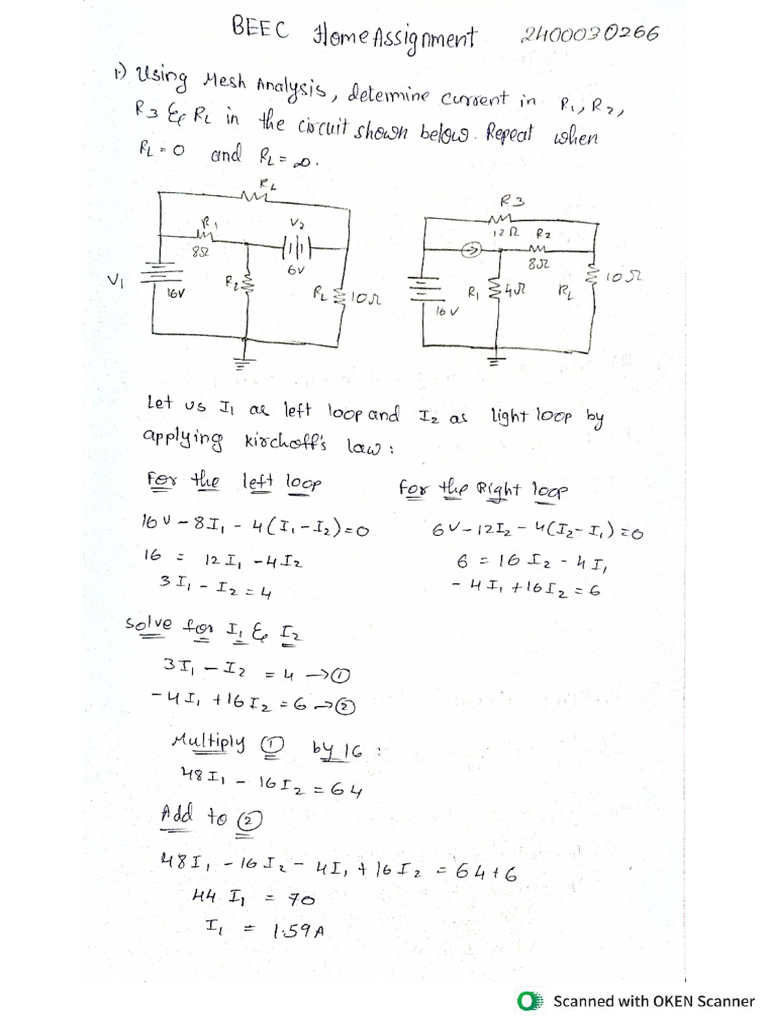 BEEC Home Assignment 2400030266
1.) Using Mesh Analysis, determine current in R1, R2,
R3 & RL in the circuit shown below. Repeat when
RL = 0 and RL = ∞.
RL
R1
8Ω
V2
6V
V1
16V
R2
RL 10Ω
R3
12Ω R2
8Ω
R1 4Ω
RL 10Ω
16V
Let us I1 as left loop and I2 as light loop by
applying kirchoff's law:
For the left loop
16V - 8I1 - 4(I1 - I2) = 0
16 = 12I1 - 4I2
3I1 - I2 = 4
For the Right loop
6V - 12I2 - 4(I2 - I1) = 0
6 = 16I2 - 4I1
- 4I1 + 16I2 = 6
Solve for I1 & I2
3I1 - I2 = 4 → ①
-4I1 + 16I2 = 6 → ②
Multiply ① by 16 :
48I1 - 16I2 = 64
Add to ②
48I1 - 16I2 - 4I1 + 16I2 = 64+6
44 I1 = 70
I1 = 1.59A
Scanned with OKEN Scanner